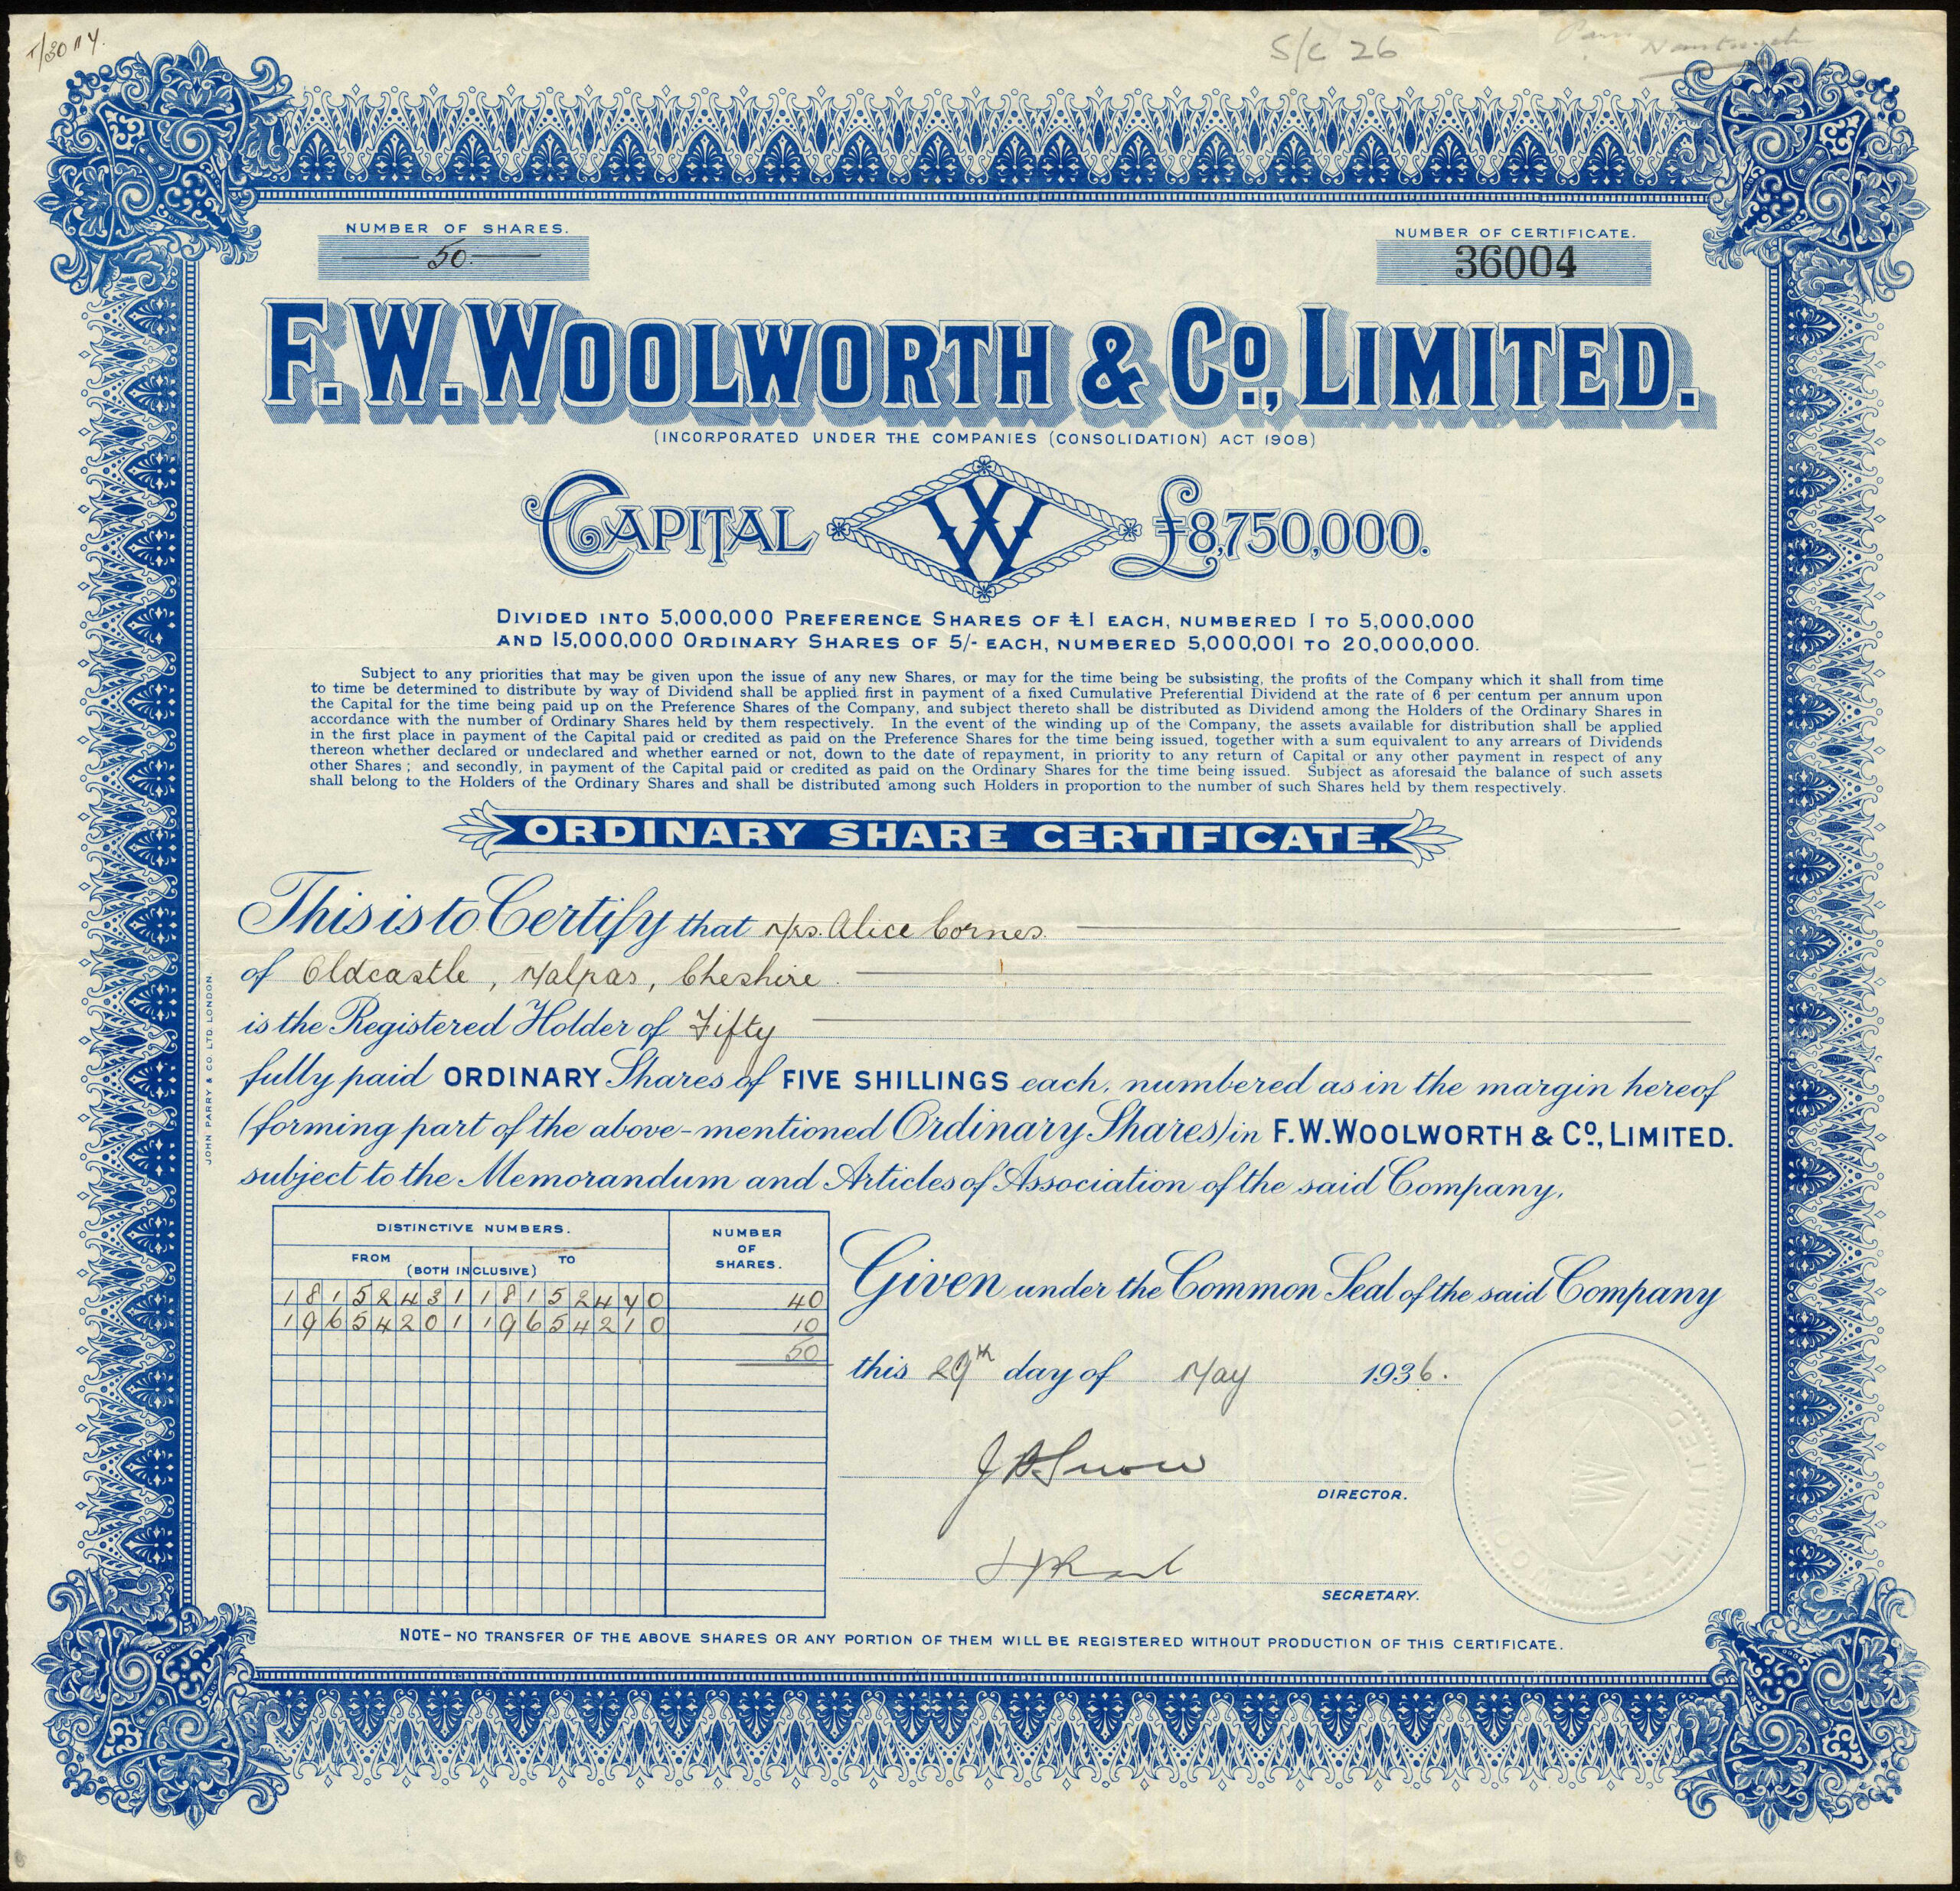 S/C 26
NUMBER OF SHARES.
50.
NUMBER OF CERTIFICATE.
36004
F. W. WOOLWORTH & CO., LIMITED.
(INCORPORATED UNDER THE COMPANIES (CONSOLIDATION) ACT 1908)
CAPITAL W £8,750,000.
DIVIDED INTO 5,000,000 PREFERENCE SHARES OF £1 EACH, NUMBERED 1 TO 5,000,000
AND 15,000,000 ORDINARY SHARES OF 5/- EACH, NUMBERED 5,000,001 TO 20,000,000.
Subject to any priorities that may be given upon the issue of any new Shares, or may for the time being be subsisting, the profits of the Company which it shall from time
to time be determined to distribute by way of Dividend shall be applied first in payment of a fixed Cumulative Preferential Dividend at the rate of 6 per centum per annum upon
the Capital for the time being paid up on the Preference Shares of the Company, and subject thereto shall be distributed as Dividend among the Holders of the Ordinary Shares in
accordance with the number of Ordinary Shares held by them respectively. In the event of the winding up of the Company, the assets available for distribution shall be applied
in the first place in payment of the Capital paid or credited as paid on the Preference Shares for the time being issued, together with a sum equivalent to any arrears of Dividends
thereon whether declared or undeclared and whether earned or not, down to the date of repayment, in priority to any return of Capital or any other payment in respect of any
other Shares ; and secondly, in payment of the Capital paid or credited as paid on the Ordinary Shares for the time being issued. Subject as aforesaid the balance of such assets
shall belong to the Holders of the Ordinary Shares and shall be distributed among such Holders in proportion to the number of such Shares held by them respectively.
ORDINARY SHARE CERTIFICATE.
This is to Certify that Mrs. Alice Cornes.
of Oldcastle, Malpas, Cheshire.
is the Registered Holder of Fifty
fully paid ORDINARY Shares of FIVE SHILLINGS each, numbered as in the margin hereof
(forming part of the above-mentioned Ordinary Shares) in F. W. WOOLWORTH & CO., LIMITED.
subject to the Memorandum and Articles of Association of the said Company.
JOHN PARRY & CO. LTD. LONDON.
DISTINCTIVE NUMBERS.
NUMBER OF SHARES.
FROM TO
(BOTH INCLUSIVE)
18152431 18152470 40
19654201 19654210 10
50
Given under the Common Seal of the said Company
this 29th day of May 1936.
DIRECTOR.
SECRETARY.
NOTE - NO TRANSFER OF THE ABOVE SHARES OR ANY PORTION OF THEM WILL BE REGISTERED WITHOUT PRODUCTION OF THIS CERTIFICATE.